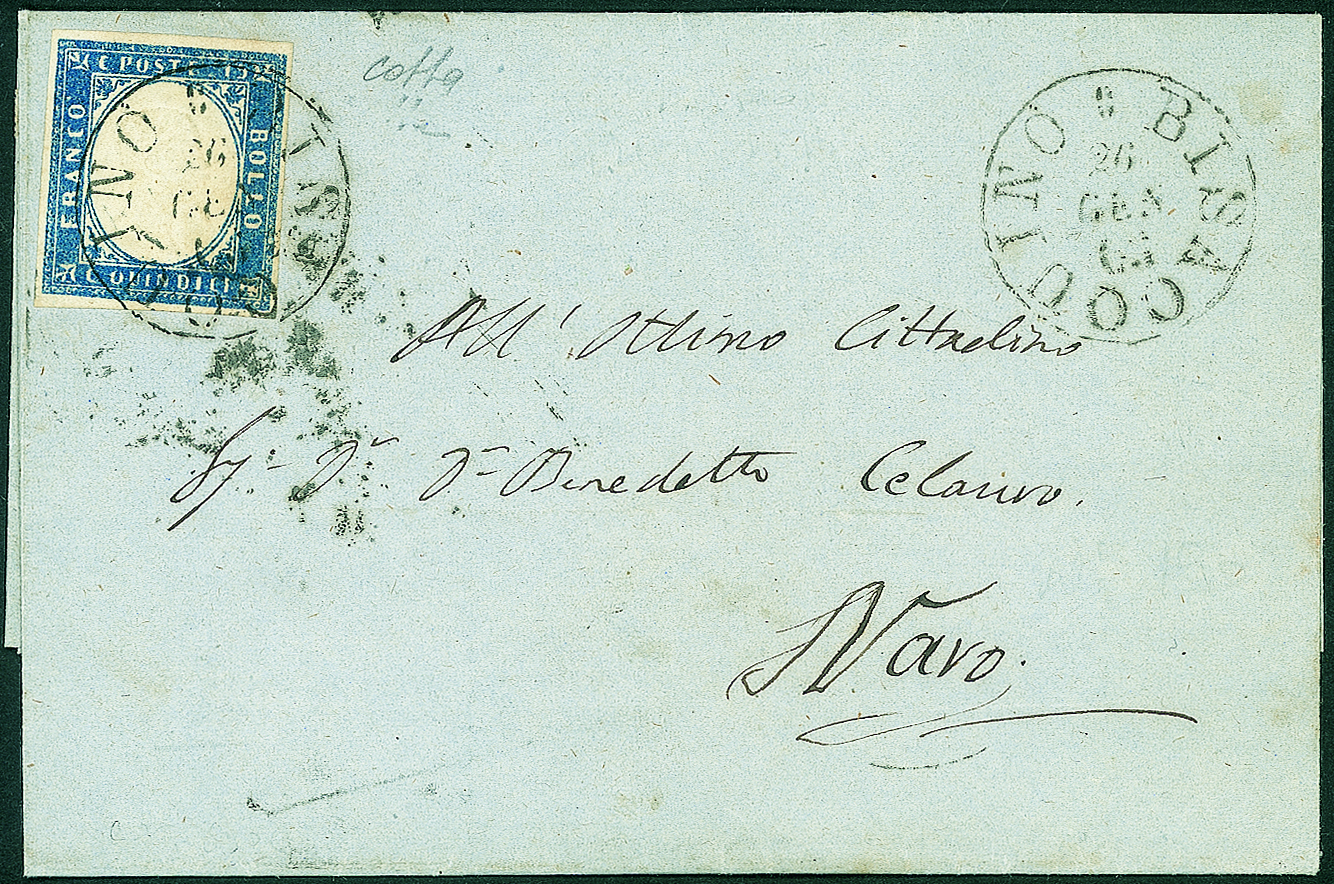 C POSTE 15
FRANCO
BOLLO
C QUINDICI
BISACQUINO
26
GEN
63
BISACQUINO
26
GEN
63
All' Ittimo Cittadino
Sr. Dn. Dn. Benedetto Celauro.
Naro.